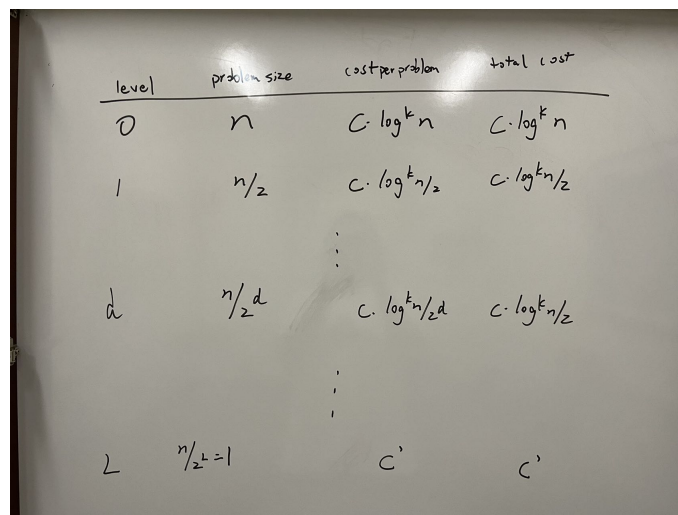 level problem size cost per problem total cost
0 n C·logᵏ n C·logᵏ n
1 n/2 C·logᵏ n/2 C·logᵏ n/2
⋮
d n/2ᵈ C·logᵏ n/2d C·logᵏ n/2
⋮
L n/2ᴸ=1 C' C'